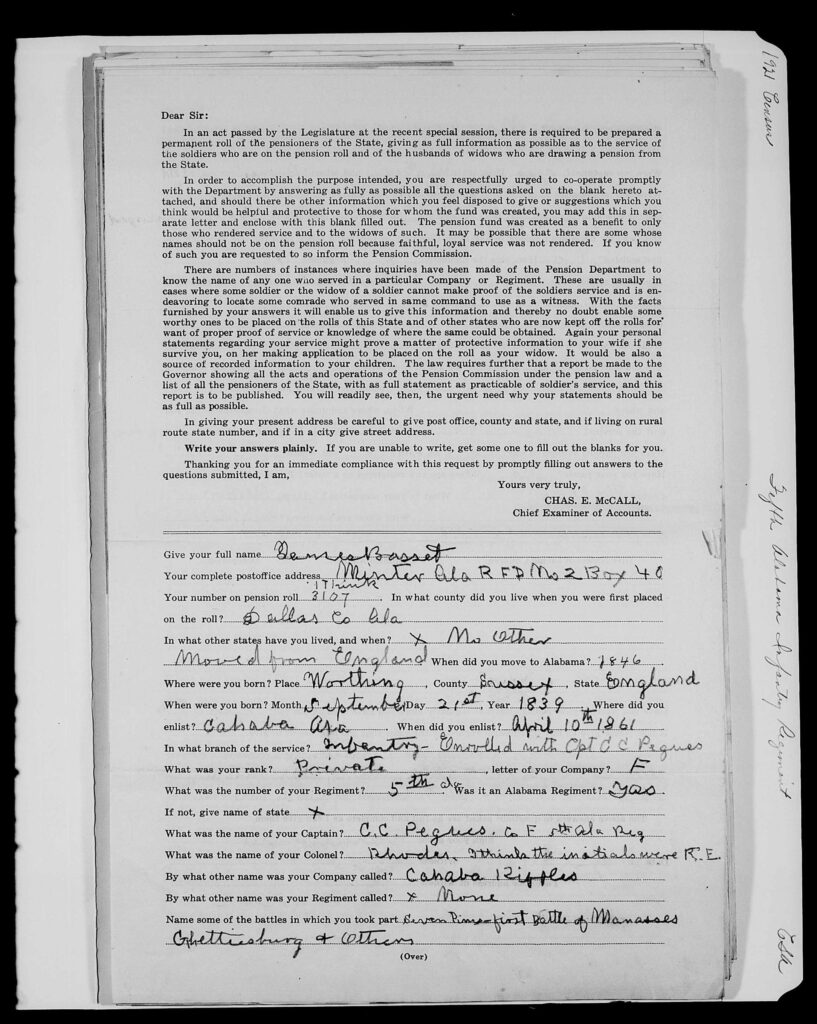 1921 Census
Dear Sir:
In an act passed by the Legislature at the recent special session, there is required to be prepared a
permanent roll of the pensioners of the State, giving as full information as possible as to the service of
the soldiers who are on the pension roll and of the husbands of widows who are drawing a pension from
the State.
In order to accomplish the purpose intended, you are respectfully urged to co-operate promptly
with the Department by answering as fully as possible all the questions asked on the blank hereto at-
tached, and should there be other information which you feel disposed to give or suggestions which you
think would be helpful and protective to those for whom the fund was created, you may add this in sep-
arate letter and enclose with this blank filled out. The pension fund was created as a benefit to only
those who rendered service and to the widows of such. It may be possible that there are some whose
names should not be on the pension roll because faithful, loyal service was not rendered. If you know
of such you are requested to so inform the Pension Commission.
There are numbers of instances where inquiries have been made of the Pension Department to
know the name of any one who served in a particular Company or Regiment. These are usually in
cases where some soldier or the widow of a soldier cannot make proof of the soldiers service and is en-
deavoring to locate some comrade who served in same command to use as a witness. With the facts
furnished by your answers it will enable us to give this information and thereby no doubt enable some
worthy ones to be placed on the rolls of this State and of other states who are now kept off the rolls for
want of proper proof of service or knowledge of where the same could be obtained. Again your personal
statements regarding your service might prove a matter of protective information to your wife if she
survive you, on her making application to be placed on the roll as your widow. It would be also a
source of recorded information to your children. The law requires further that a report be made to the
Governor showing all the acts and operations of the Pension Commission under the pension law and a
list of all the pensioners of the State, with as full statement as practicable of soldier's service, and this
report is to be published. You will readily see, then, the urgent need why your statements should be
as full as possible.
In giving your present address be careful to give post office, county and state, and if living on rural
route state number, and if in a city give street address.
Write your answers plainly. If you are unable to write, get some one to fill out the blanks for you.
Thanking you for an immediate compliance with this request by promptly filling out answers to the
questions submitted, I am,
Yours very truly,
CHAS. E. McCALL,
Chief Examiner of Accounts.
Fifth Alabama Infantry Regiment
CSA
Give your full name James Basset
Your complete postoffice address Minter Ala R F D No 2 Box 40
I Think
Your number on pension roll 3107. In what county did you live when you were first placed
on the roll? Dallas Co Ala
In what other states have you lived, and when? x No Other
Moved from England When did you move to Alabama? 1846
Where were you born? Place Worthing, County Sussex, State England
When were you born? Month September Day 21st, Year 1839. Where did you
enlist? Cahaba Ala. When did you enlist? April 10th 1861
In what branch of the service? Infantry - Enrolled with Cpt C C Pegues
What was your rank? Private, letter of your Company? F
What was the number of your Regiment? 5th Ala Was it an Alabama Regiment? Yas
If not, give name of state x
What was the name of your Captain? C. C. Pegues. Co F 5th Ala Reg
What was the name of your Colonel? Rhodes. I think the initials were R. E.
By what other name was your Company called? Cahaba Rifles
By what other name was your Regiment called? x None
Name some of the battles in which you took part Seven Pines - first Battle of Manasses
Ghettiesburg & Others
(Over)